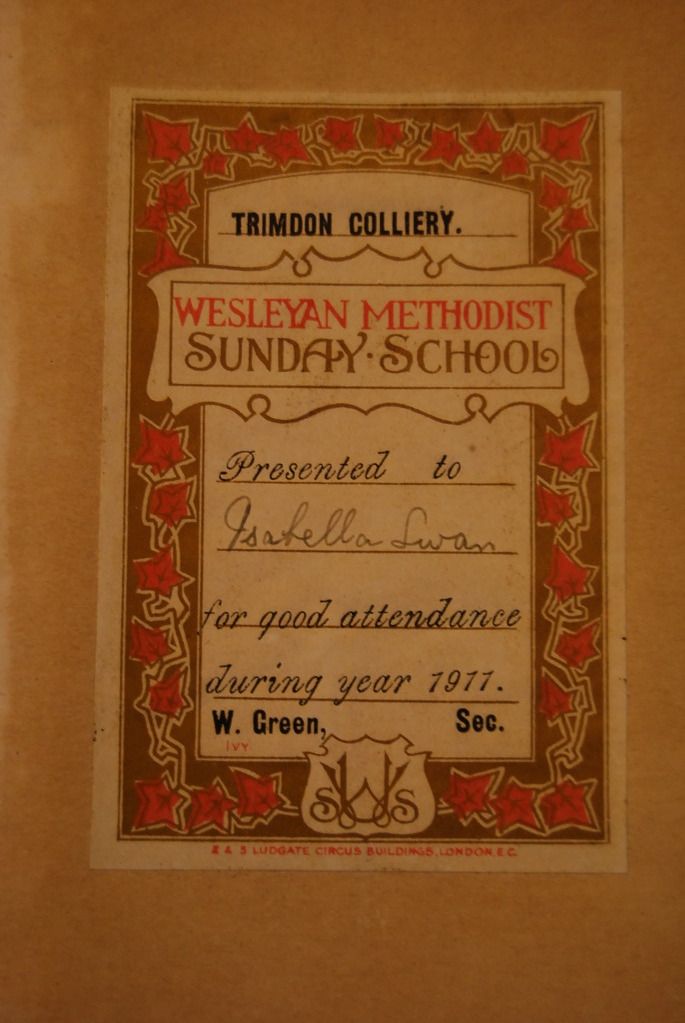 TRIMDON COLLIERY.
WESLEYAN METHODIST
SUNDAY·SCHOOL
Presented to
Isabella Swan
for good attendance
during year 1911.
W. Green, Sec.
IVY
SWS
2 & 3 LUDGATE CIRCUS BUILDINGS, LONDON, E.C.